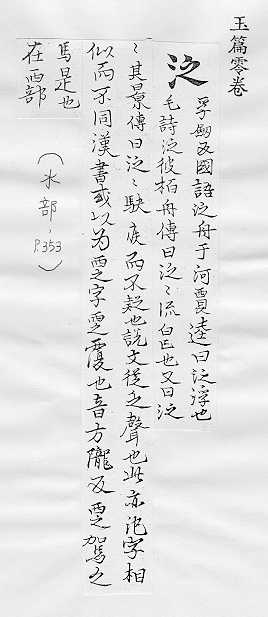 玉篇零卷
泛 孚劒反國語泛舟于河賈逵曰泛浮也
毛詩泛彼栢舟傳曰泛〻流皃也又曰泛
〻其景傳曰泛〻駃疾而不礙也說文從乏聲也此亦汎字相
似而不同漢書或以為覂字覂覆也音方隴反覂駕之
馬是也
在襾部
(水部,P.353)